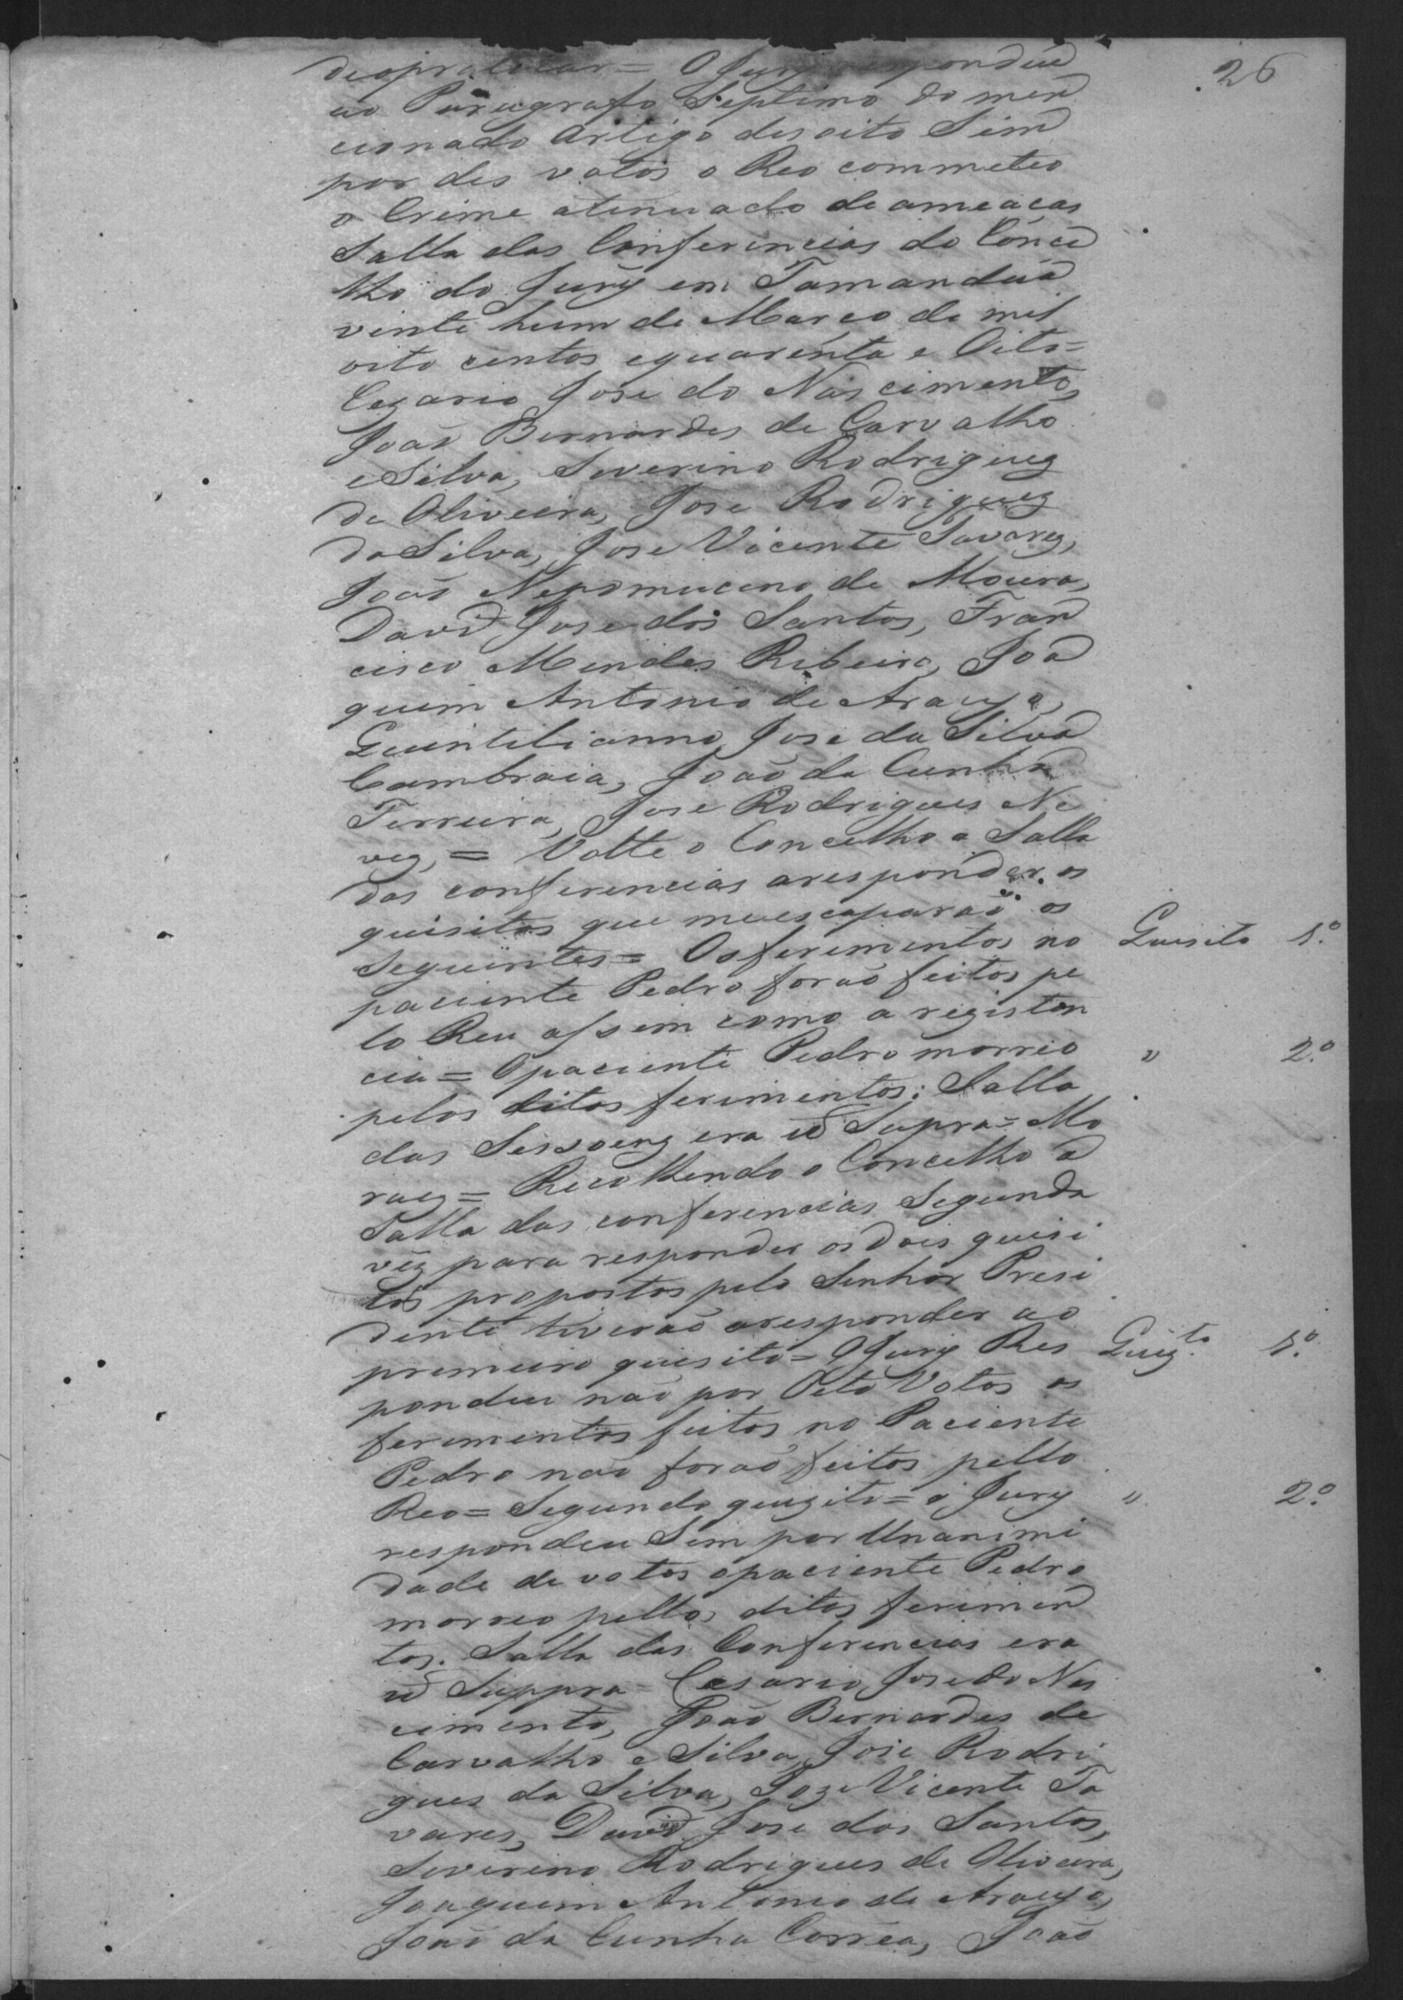 26
O Jury respondeu
ao Paragrafo Septimo do men
cionado Artigo desoito Sim
por des votos o Reo commeteo
o Crime atenuado de ameaças
Salla das Conferencias do Conce
lho do Jury em Tamanduá
vinte hum de Março de mil
oito centos equarenta e Oito=
Cezario Jose do Nascimento,
João Bernardes de Carvalho
e Silva, Severino Rodriguez
de Oliveira, Jose Rodriguez
da Silva, Jose Vicente Tavarez,
João Nepomuceno de Moura,
David Jose dos Santos, Fran
cisco Mendes Ribeiro, Joa
quim Antonio de Araujo,
Quintilianno Jose da Silva
Cambraia, João da Cunha
Ferreira, Jose Rodrigues Ne
vez, = Volte o Concelho a Salla
das conferencias aresponder os
quisitos que meescaparão os
Seguintes= Os ferimentos no
Quesito 1.º
paciente Pedro forão feitos pe
lo Reu assim como a rezisten
cia= Opaciente Pedro morreo
" 2.º
pelos ditos ferimentos: Salla
das Sessoens era ut Supra= Mo
raes= Recolhendo o Concelho a
Salla das conferencias Segunda
vez para responder os dois quisi
tos propostos pelo Senhor Presi
dente tiverão aresponder ao
premeiro quisito= OJury Res
Quiz.to 1.º
pondeu não por Oito Votos os
ferimentos feitos no Paciente
Pedro não forão feitos pello
Reo= Segundo quizito= o Jury
" 2.º
respondeu Sim por Unanimi
dade de votos opaciente Pedro
morreo pellos ditos ferimen
tos. Salla das Conferencias era
ut Suppra= Cesario Jose do Nas
cimento, João Bernardes de
Carvalho e Silva, Jose Rodri
gues da Silva, Joze Vicente Ta
vares, David Jose dos Santos,
Severino Rodrigues de Oliveira,
Joaquim Antonio de Araujo,
João da Cunha Corrêa, João